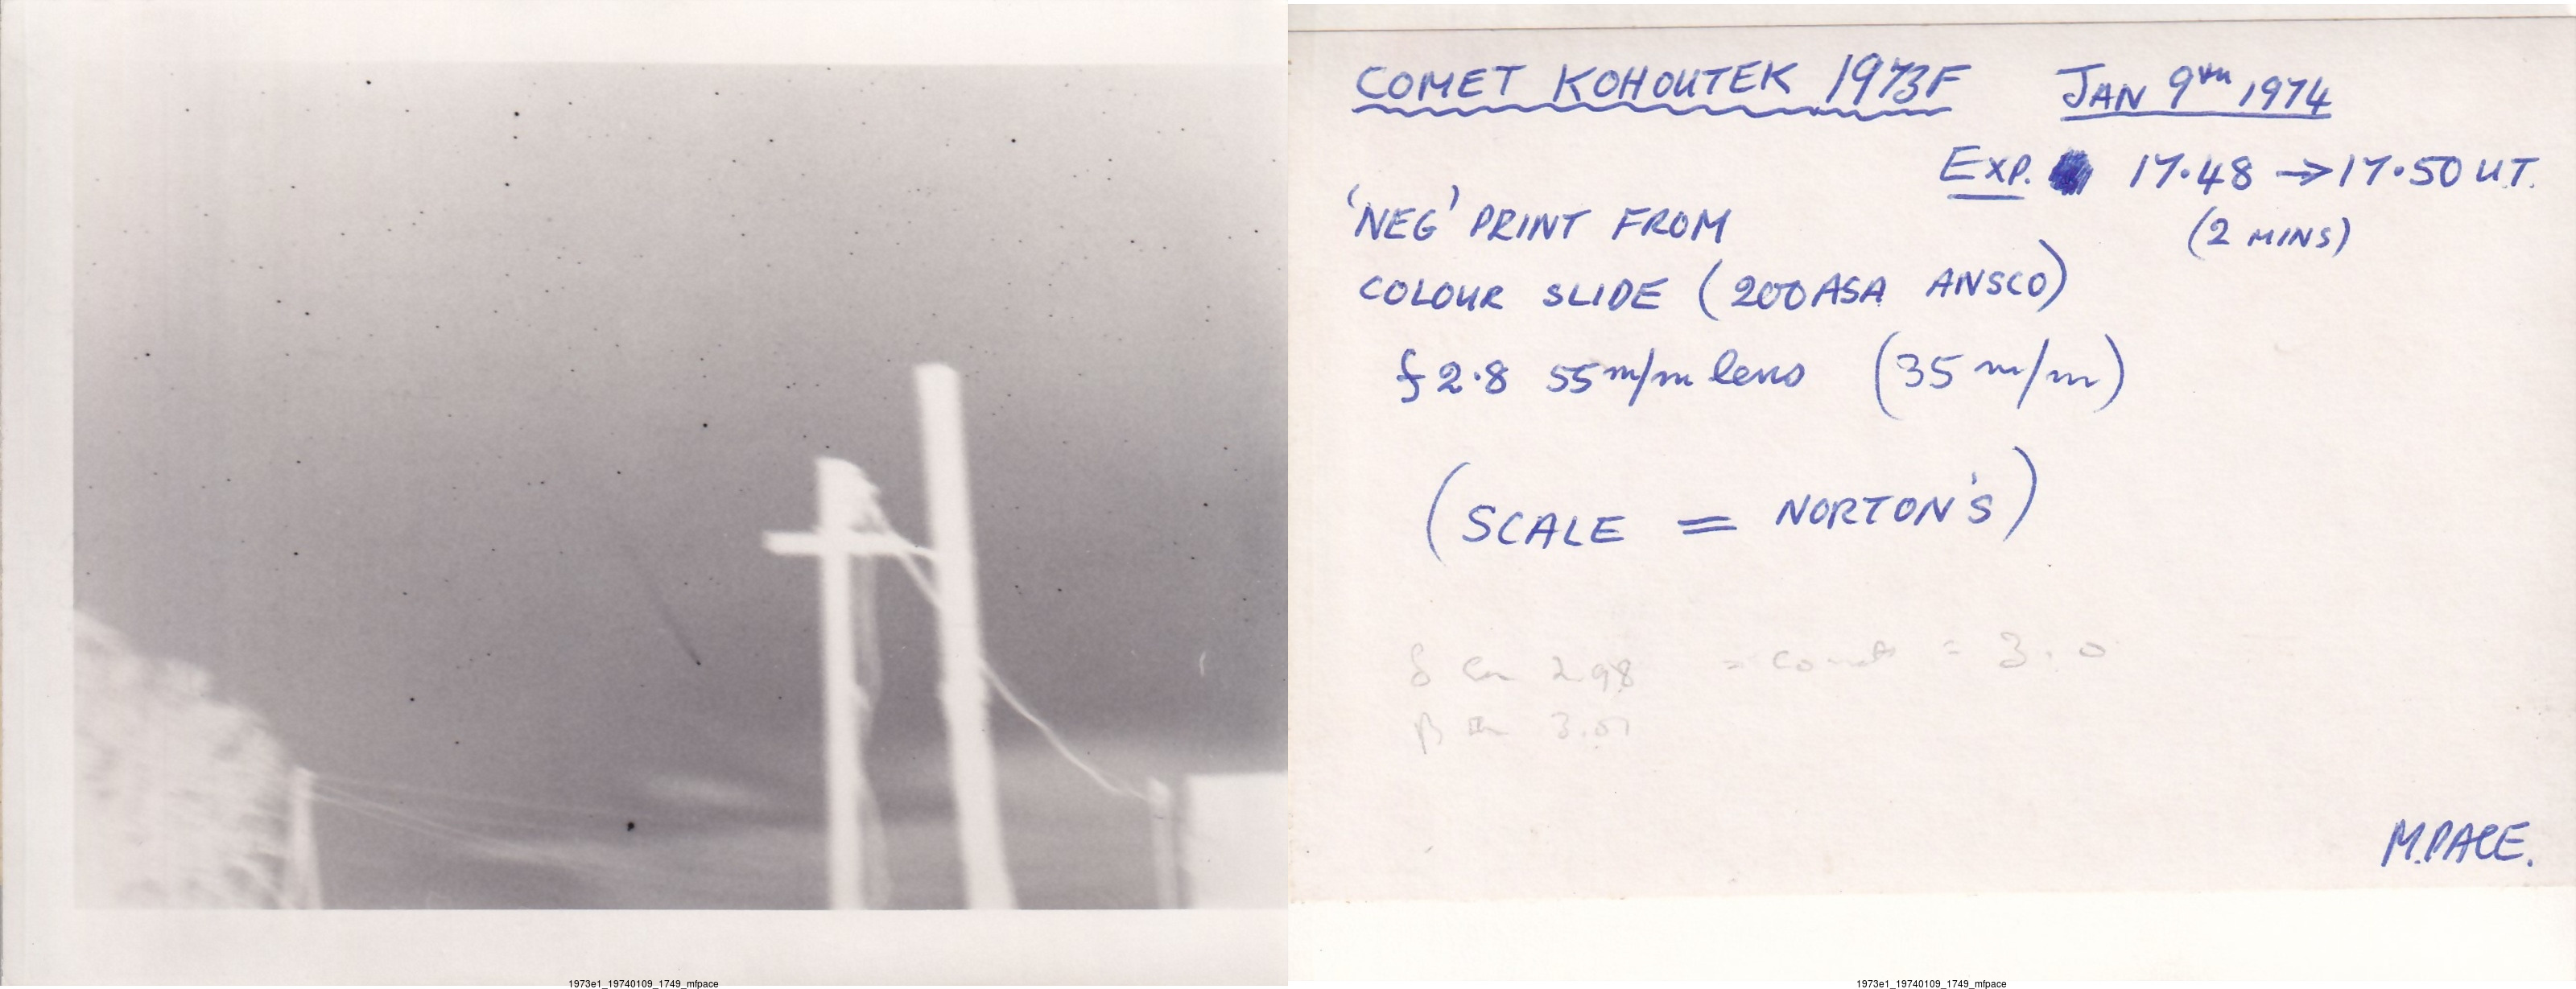 COMET KOHOUTEK 1973F JAN 9TH 1974
EXP. 17.48 → 17.50 U.T.
(2 MINS)
'NEG' PRINT FROM
COLOUR SLIDE (200ASA ANSCO)
f2.8 55m/m lens (35 m/m)
(SCALE = NORTON'S)
δ 2.98 = comet = 3.0
β
M.PACE.
1973e1_19740109_1749_mfpace
1973e1_19740109_1749_mfpace